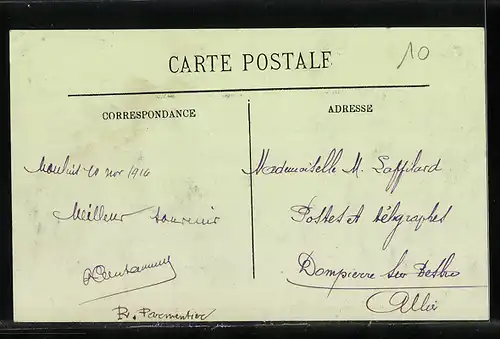 10
CARTE POSTALE
CORRESPONDANCE
Moulins 10 nov 1916
Meilleur souvenir
R. Parmentier
ADRESSE
Mademoiselle M. Laffilard
Postes et télégraphes
Dompierre sur Besbre
Allier